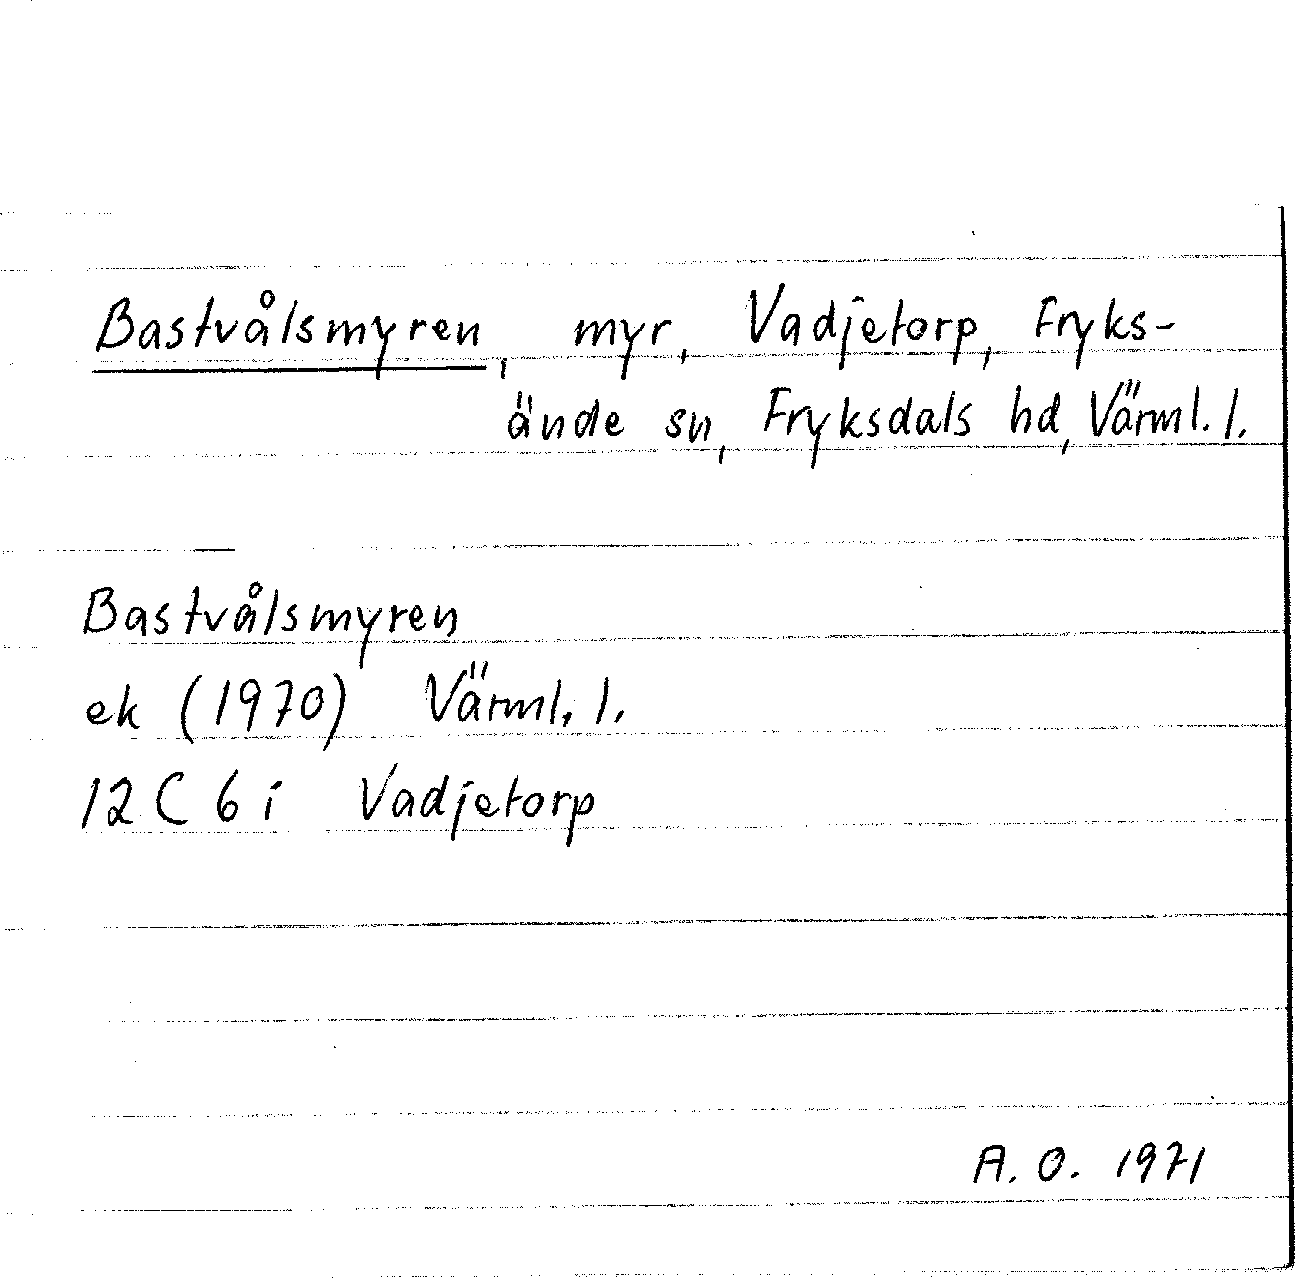 Bastvålsmyren, myr, Vadjetorp, Fryks-
ände sn, Fryksdals hd, Värml. l.
Bastvålsmyren
ek (1970) Värml. l.
12 C 6 i Vadjetorp
A. O. 1971